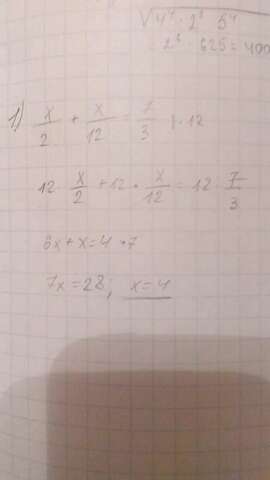 √4⁴ · 2² 5⁴
2⁶ · 625 = 400
1) x/2 + x/12 = 7/3 | · 12
12 · x/2 + 12 · x/12 = 12 · 7/3
6x + x = 4 · 7
7x = 28; x = 4